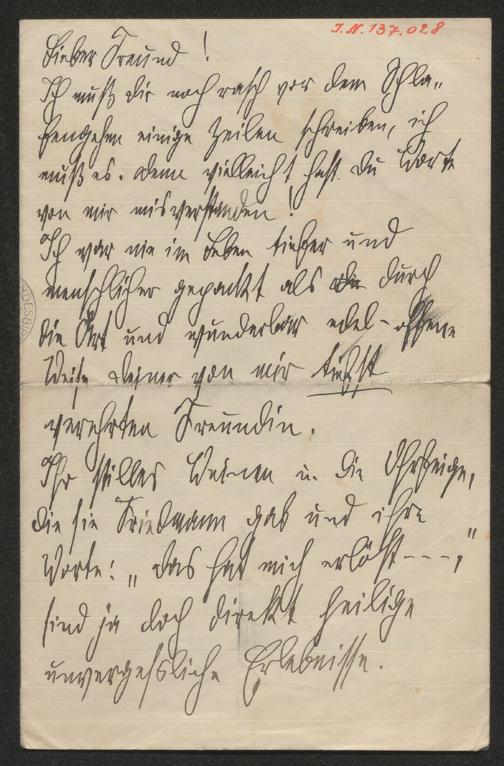 J.N. 137.028
Lieber Freund!
Ich muß dir noch rasch vor dem Schla-
fengehen einige Zeilen schreiben, ich
muß es. denn vielleicht hast Du Worte
von mir misverstanden!
Ich war nie im Leben tiefer und
menschlicher gepackt als durch
die Art und wunderbar edel-offene
Weise deiner von mir tiefst
verehrten Freundin.
Ihr stilles Weinen u. die Ohrfeige,
die sie Friedmann gab und ihre
Worte: „das hat mich erlöst---,"
sind ja doch direkt heilige
unvergessliche Erlebnisse.